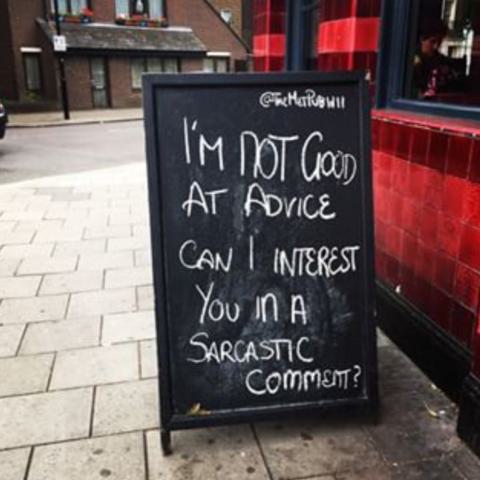 @TheMetPubW11
I'M NOT GOOD
AT ADVICE
CAN I INTEREST
YOU IN A
SARCASTIC
COMMENT?